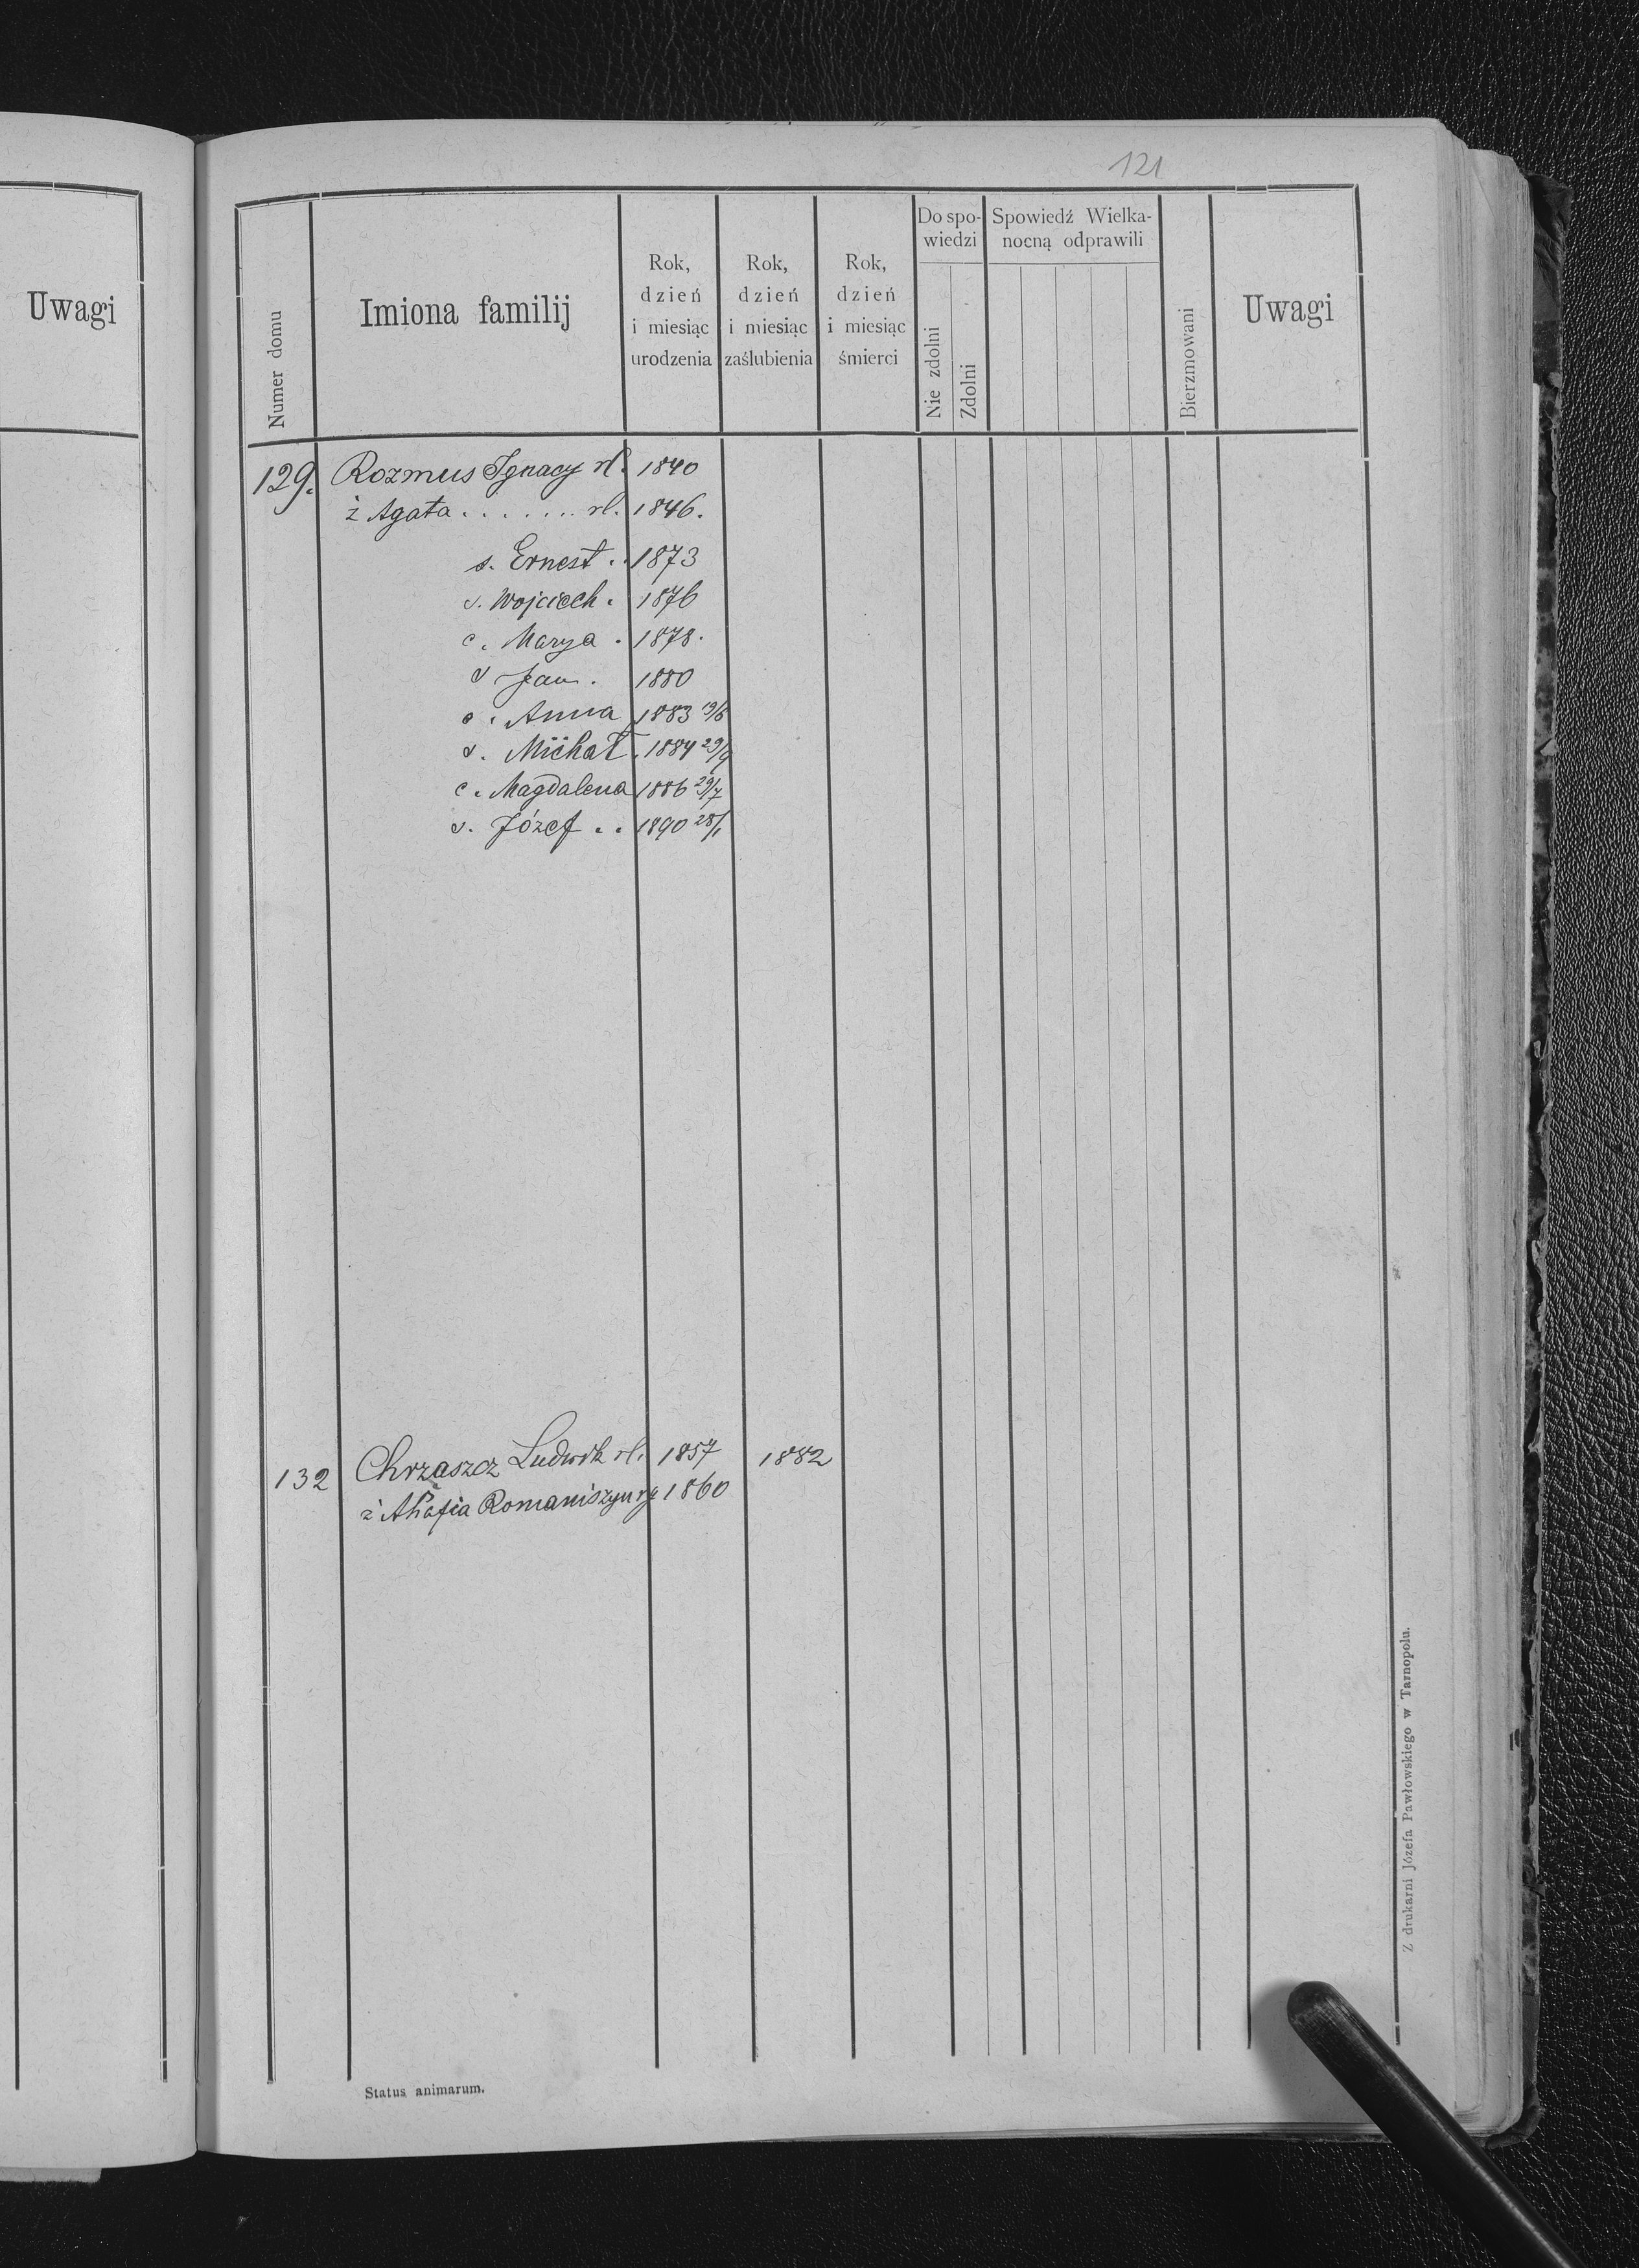 121
Uwagi
Numer domu
Imiona familij
Rok, dzień i miesiąc urodzenia
Rok, dzień i miesiąc zaślubienia
Rok, dzień i miesiąc śmierci
Do spo-
wiedzi
Nie zdolni
Zdolni
Spowiedź Wielka-
nocną odprawili
Bierzmowani
Uwagi
129. Rozmus Ignacy rl. 1840
ż Agata . . . . . . . rl. 1846.
s. Ernest . . 1873
s. Wojciech . 1876
c. Marya . 1878.
s Jan . 1880
c. Anna 1883 19/6
s. Michał . 1884 29/9
c. Magdalena 1886 29/7
s. Józef . . 1890 28/1
132 Chrząszcz Ludwik rl. 1857 1882
ż Ahafia Romaniszyn rg 1860
Status animarum.
Z drukarni Józefa Pawłowskiego w Tarnopolu.